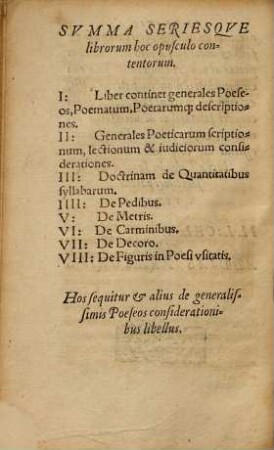 SVMMA SERIESQVE
librorum hoc opusculo con-
tentorum.
I: Liber continet generales Poese-
os, Poematum, Poetarumq; descriptio-
nes.
II: Generales Poeticarum scriptio-
num, lectionum & iudiciorum consi-
derationes.
III: Doctrinam de Quantitatibus
syllabarum.
IIII: De Pedibus.
V: De Metris.
VI: De Carminibus.
VII: De Decoro.
VIII: De Figuris in Poesi vsitatis.
Hos sequitur & alius de generalis-
simis Poeseos considerationi-
bus libellus.